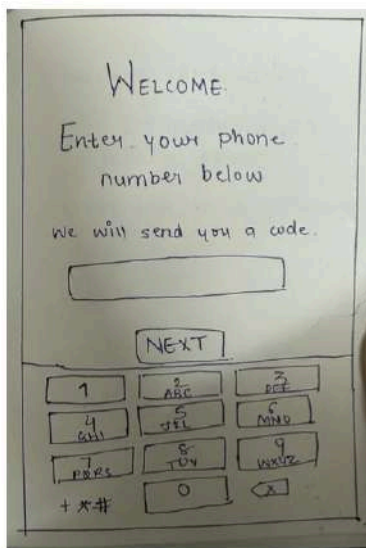 WELCOME.
Enter your phone
number below
we will send you a code.
NEXT
1 2 3
ABC DEF
4 5 6
GHI JKL MNO
7 8 9
PQRS TUV WXYZ
+ * # 0 X